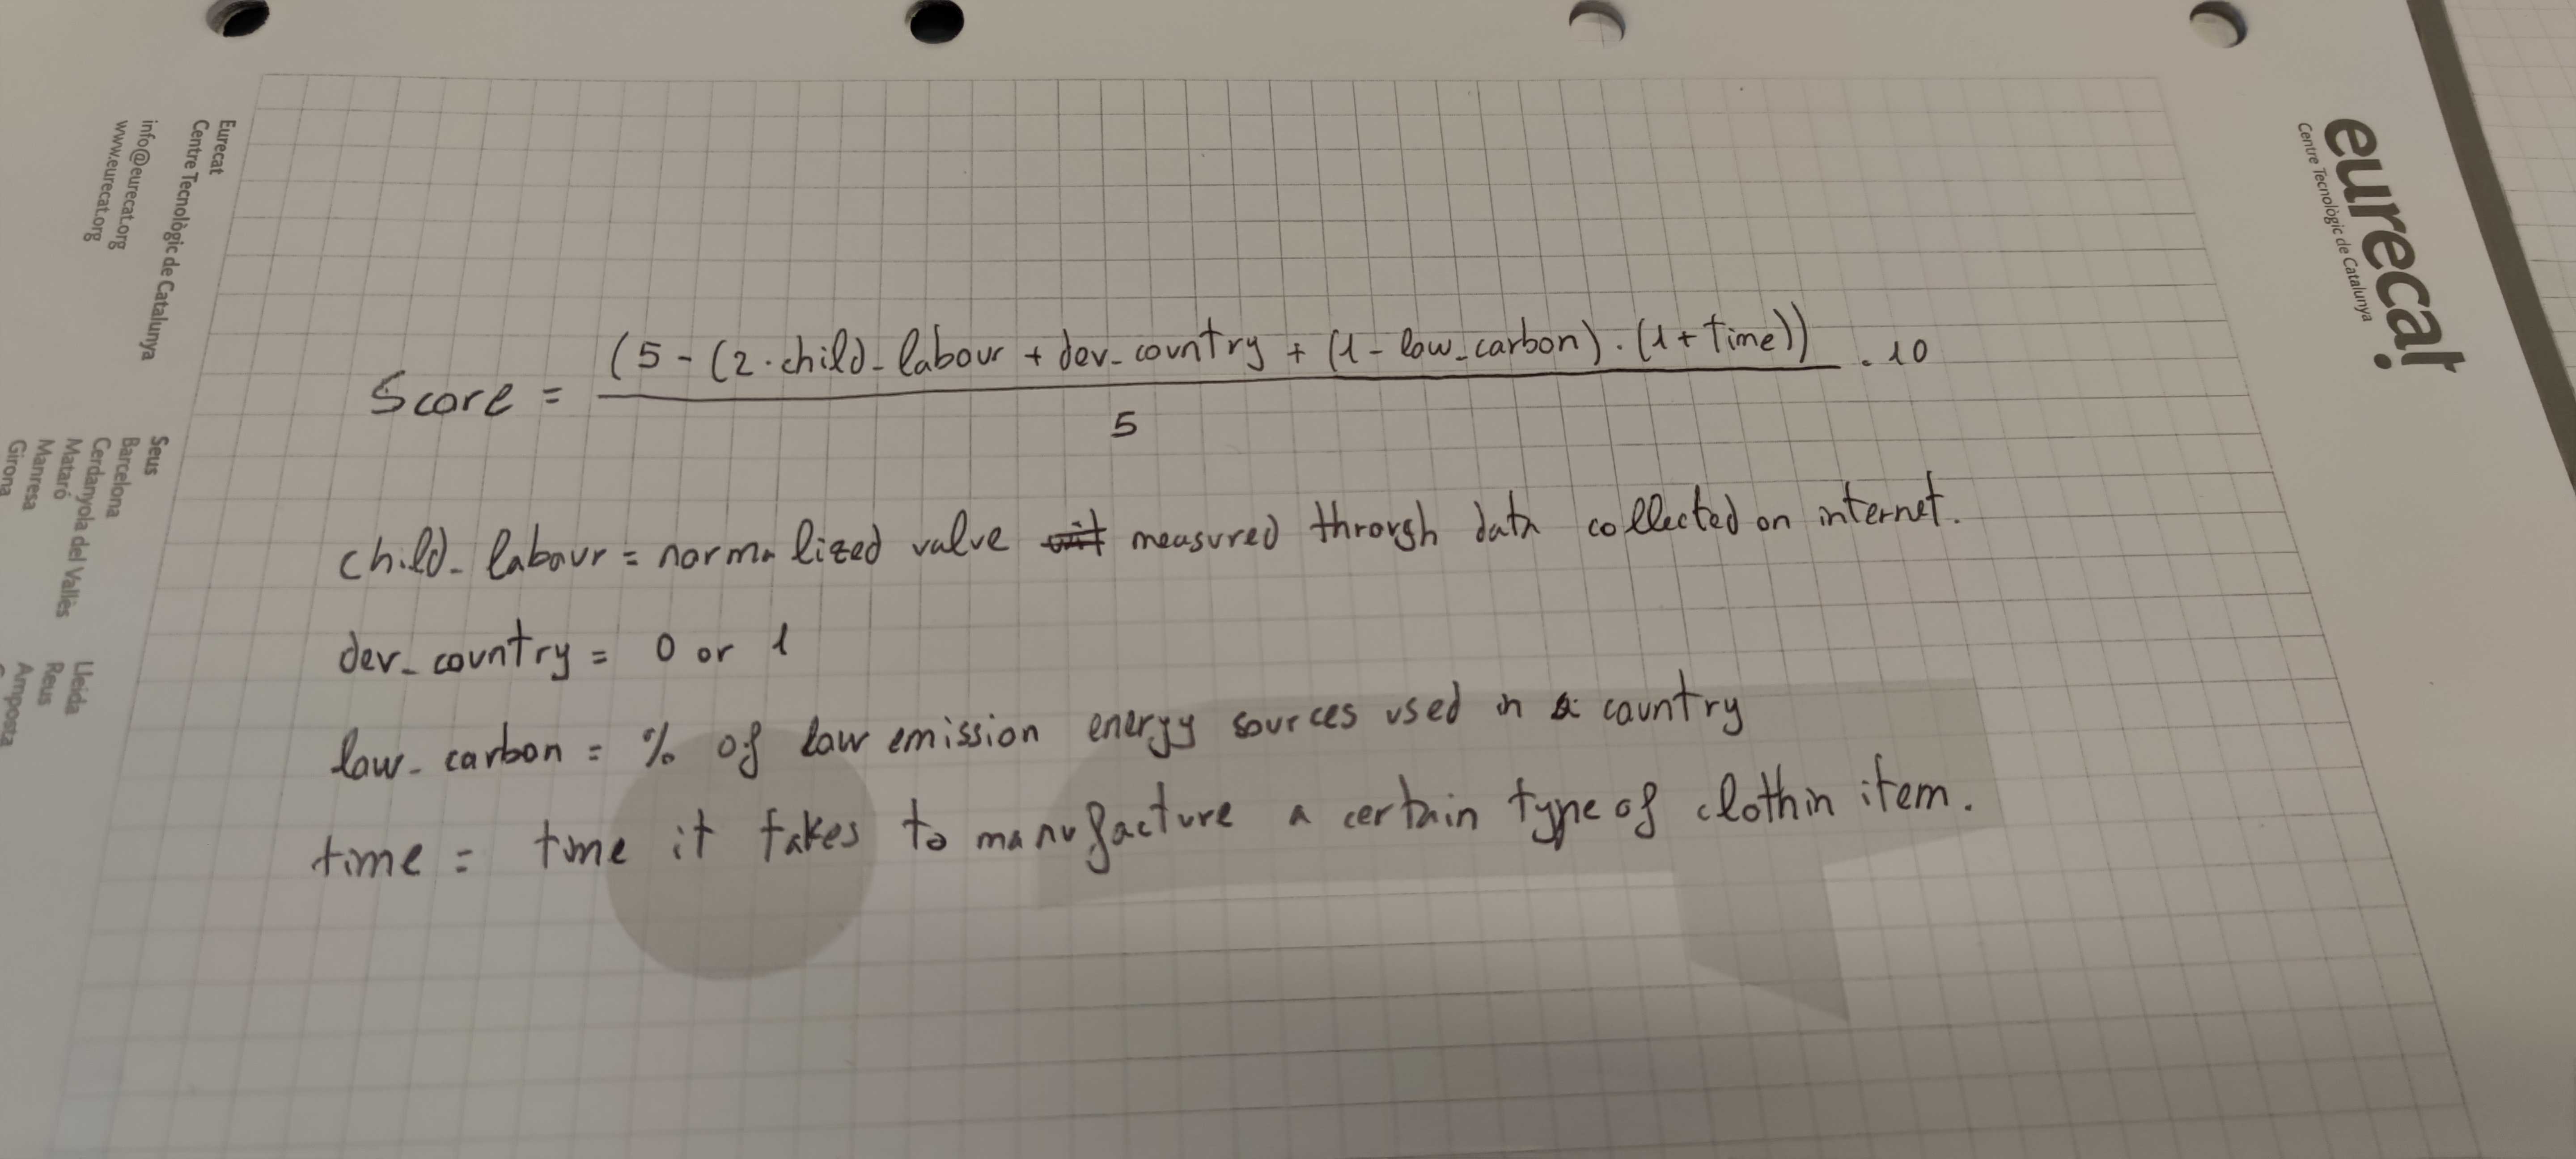 eurecat
Centre Tecnològic de Catalunya
Eurecat
Centre Tecnològic de Catalunya
info@eurecat.org
www.eurecat.org
Seus
Barcelona
Cerdanyola del Vallès
Mataró
Manresa
Girona
Lleida
Reus
Amposta
Score = (5 - (2 · child_labour + dev_country + (1 - low_carbon) · (1 + time)) / 5 · 10
child_labour = normalized value measured through data collected on internet.
dev_country = 0 or 1
low_carbon = % of low emission energy sources used in a country
time = time it takes to manufacture a certain type of clothin item.